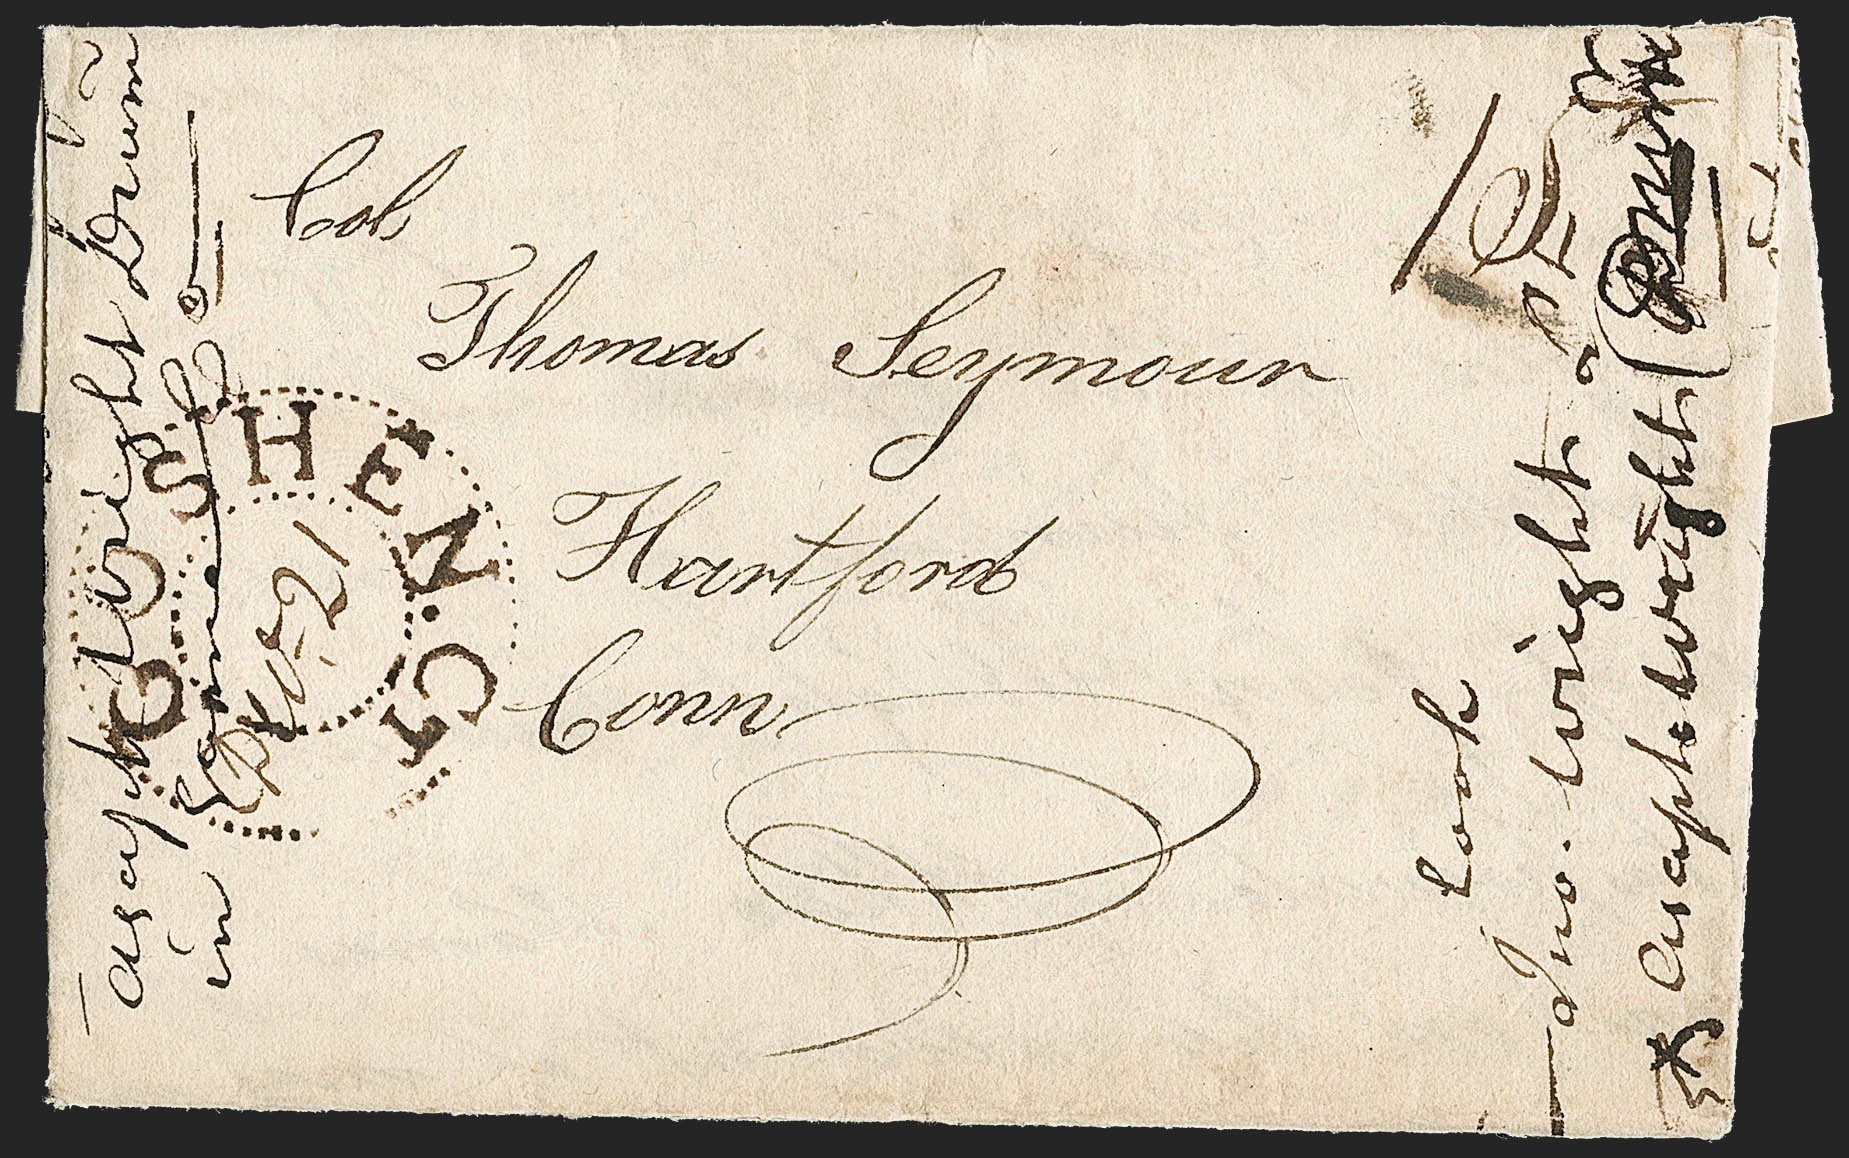 Col
Thomas Seymour
Hartford
Conn
GOSHEN. CT
21
asaph Wright Drum
in
Look
Jno. Wright
asaph Wright (Drum